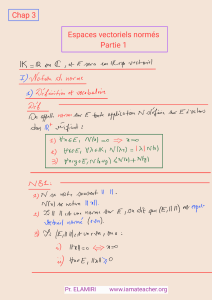 Chap 3
Espaces vectoriels normés
Partie 1
IK = IR ou ℂ, et E sera un IK-esp vectoriel
I) Notion de norme
1) Définition et vocabulaire
Déf
On appelle norme sur E toute application N définie sur E à valeurs
dans IR⁺ vérifiant :
1) ∀x∈E, N(x) = 0 ⟺ x=0
2) ∀x∈E, ∀λ∈IK, N(λx) = |λ| N(x)
3) ∀x,y∈E, N(x+y) ≤ N(x) + N(y)
NB:
1) N se note souvent || ||.
N(x) se note ||x||.
2) Si || || est une norme sur E, on dit que (E, || ||) est espace
vectoriel normé (evn).
3) Si (E, || ||) est un evn, on a :
i) ||x|| = 0 ⟺ x=0
ii) ∀x∈E, ||x|| ≥ 0
Pr. ELAMIRI www.iamateacher.org